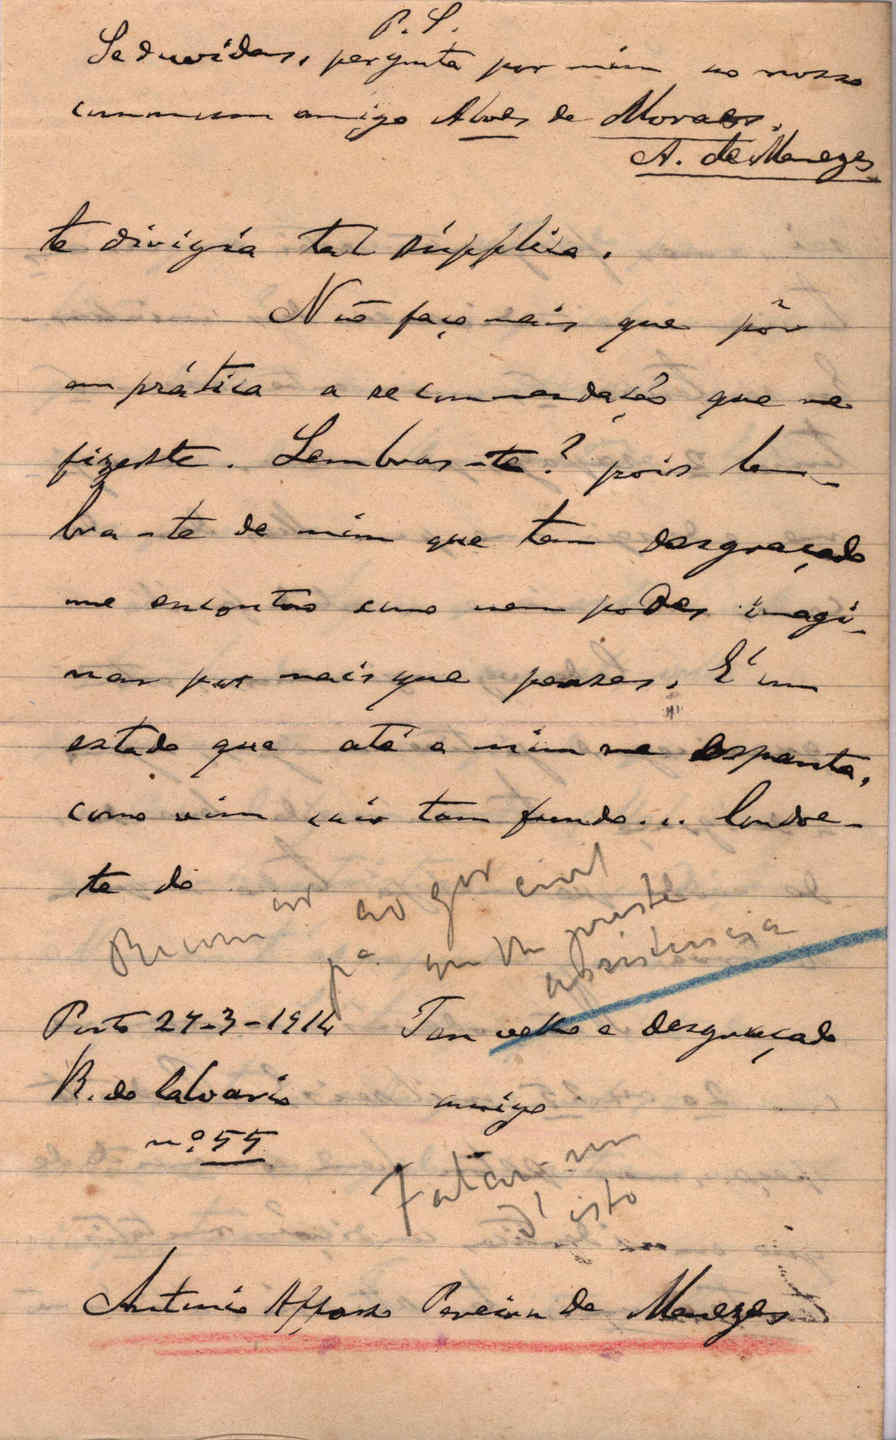 P. S.
Se duvidas, pergunta por mim ao nosso
commum amigo Alves de Moraes.
A. de Menezes
te dirigia tal súpplica.
Não faço mais que pôr
em prática a recommendação que me
fizeste. Lembras-te? pois lem-
bra-te de mim que tam desgraçado
me encontro como nem podes imagi-
nar por mais que penses. É um
estado que até a mim me espanta,
como vim cair tam fundo... Condoe-
te do
Recomdar ao Gor civil
pa. que lhe preste
assistencia
Porto 27-3-1914 Teu velho e desgraçado
R. do Calvario amigo
nº 55
Falaram-me
d'isto
Antonio Affonso Pereira de Menezes